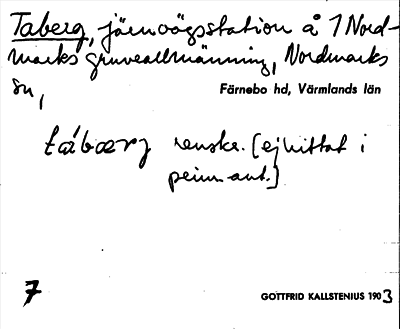 Taberg, järnvägsstation å 1 Nord-
marks gruveallmänning, Nordmarks
sn,
Färnebo hd, Värmlands län
tábærj renskr. [ej hittat i
prim. ant.]
7
GOTTFRID KALLSTENIUS 1903